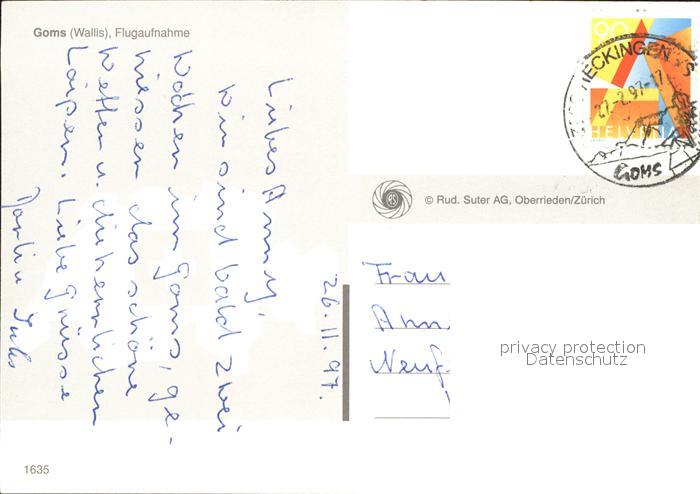 Goms (Wallis), Flugaufnahme
26. II. 97.
Liebes Anny,
wir sind bald zwei
Wochen im Goms, ge-
niessen das schöne
Wetter u. die herrlichen
Loipen. Liebe Grüsse
1635
90
RECKINGEN VS
27-2.97-17
HELVETIA
GOMS
© Rud. Suter AG, Oberrieden/Zürich
Frau
Ann
Neuf
privacy protection
Datenschutz